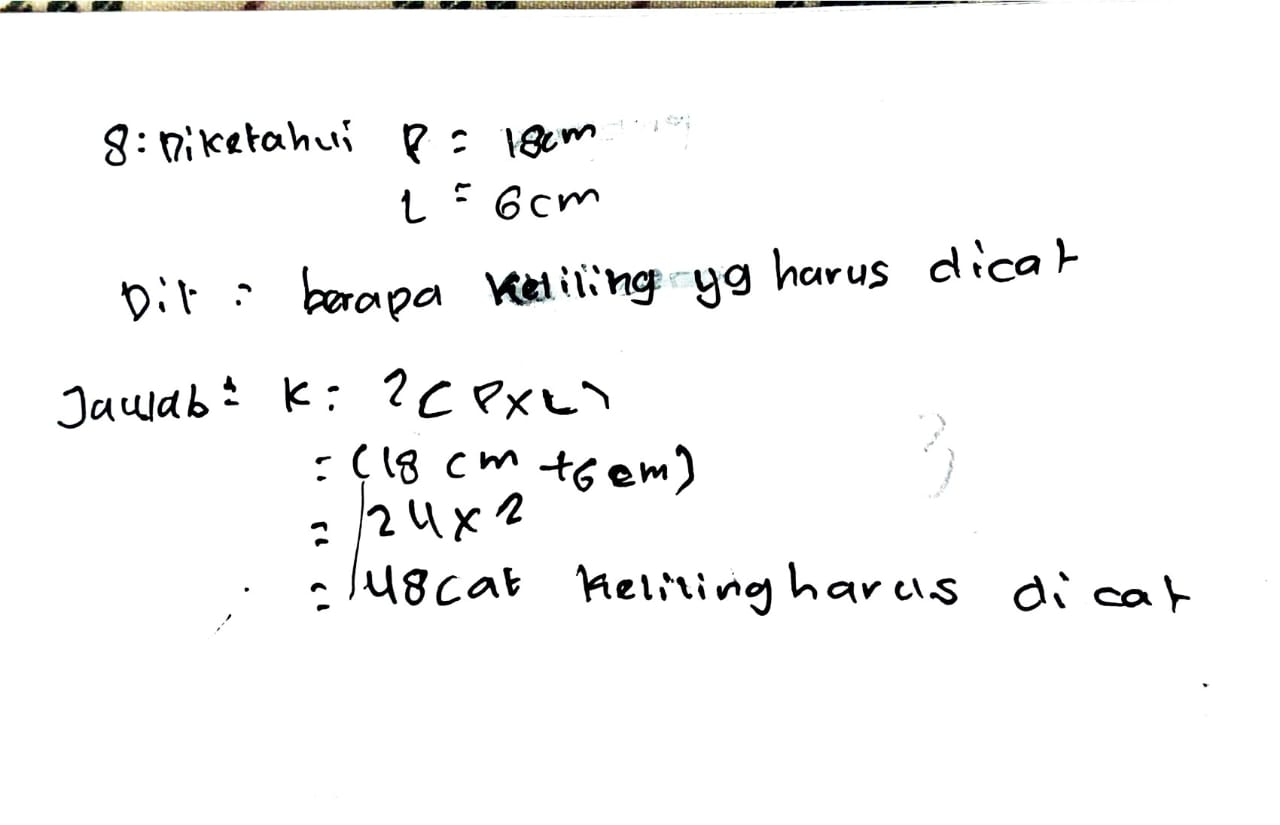 8: Diketahui P = 18cm
L = 6cm
Dit : berapa keliling yg harus dicat
Jawab : K : 2 ( P x L )
= ( 18 cm + 6 cm )
= 24 x 2
= 48 cat keliling harus di cat
3